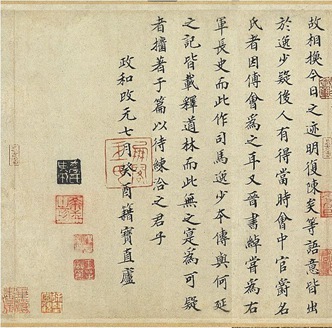 故相換今日之跡明復陳矣等語意皆出
於逸少疑後人有得當時會中官爵名
氏者因傅會為之耳又晉書綽嘗為右
軍長史而此作司馬逸少本傳與何延
之記皆載釋道林而此無之寔為可疑
者擂著于篇以待練洽之君乎
政和改元七月癸酉籍寶直廬